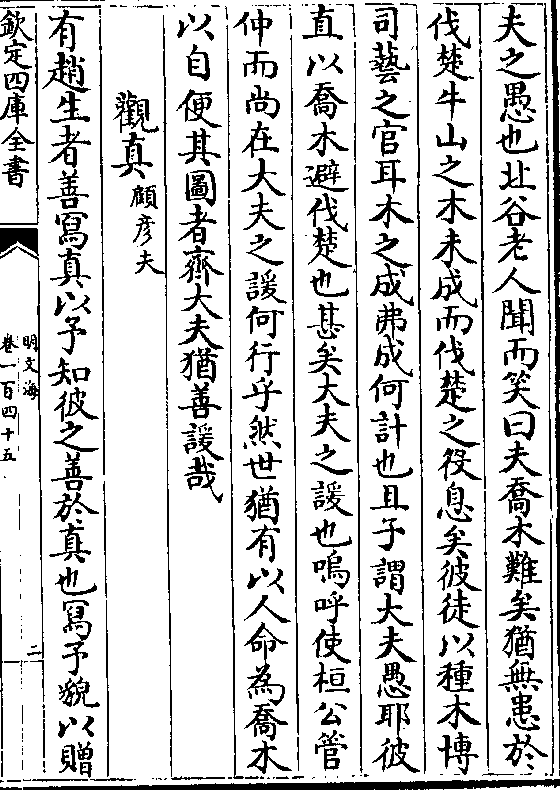 夫之愚也北谷老人聞而笑曰夫喬木難矣猶無患於
伐楚牛山之木未成而伐楚之役息矣彼徒以種木博
司藝之官耳木之成弗成何計也且子謂大夫愚耶彼
直以喬木避伐楚也甚矣大夫之諼也嗚呼使桓公管
仲而尚在大夫之諼何行乎然世猶有以人命為喬木
以自便其圖者齊大夫猶善諼哉
觀真顧彦夫
有趙生者善寫真以予知彼之善於真也寫予貌以贈
欽定四庫全書
明文海
卷一百四十五
二